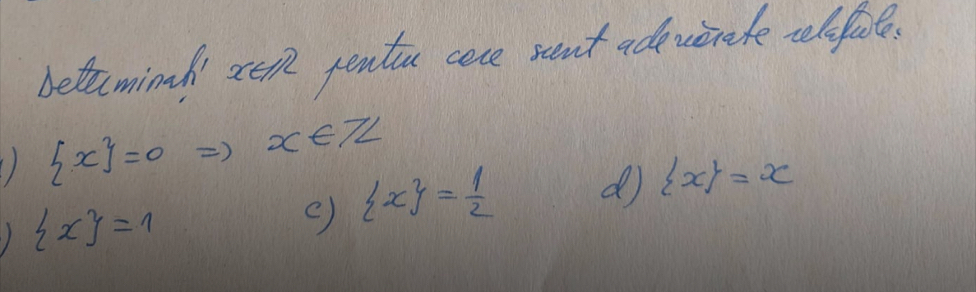 Determinați x∈ℝ pentru care sunt adevărate relațiile:
) {x}=0 => x∈ℤ
) {x}=1 c) {x}=1/2 d) {x}=x